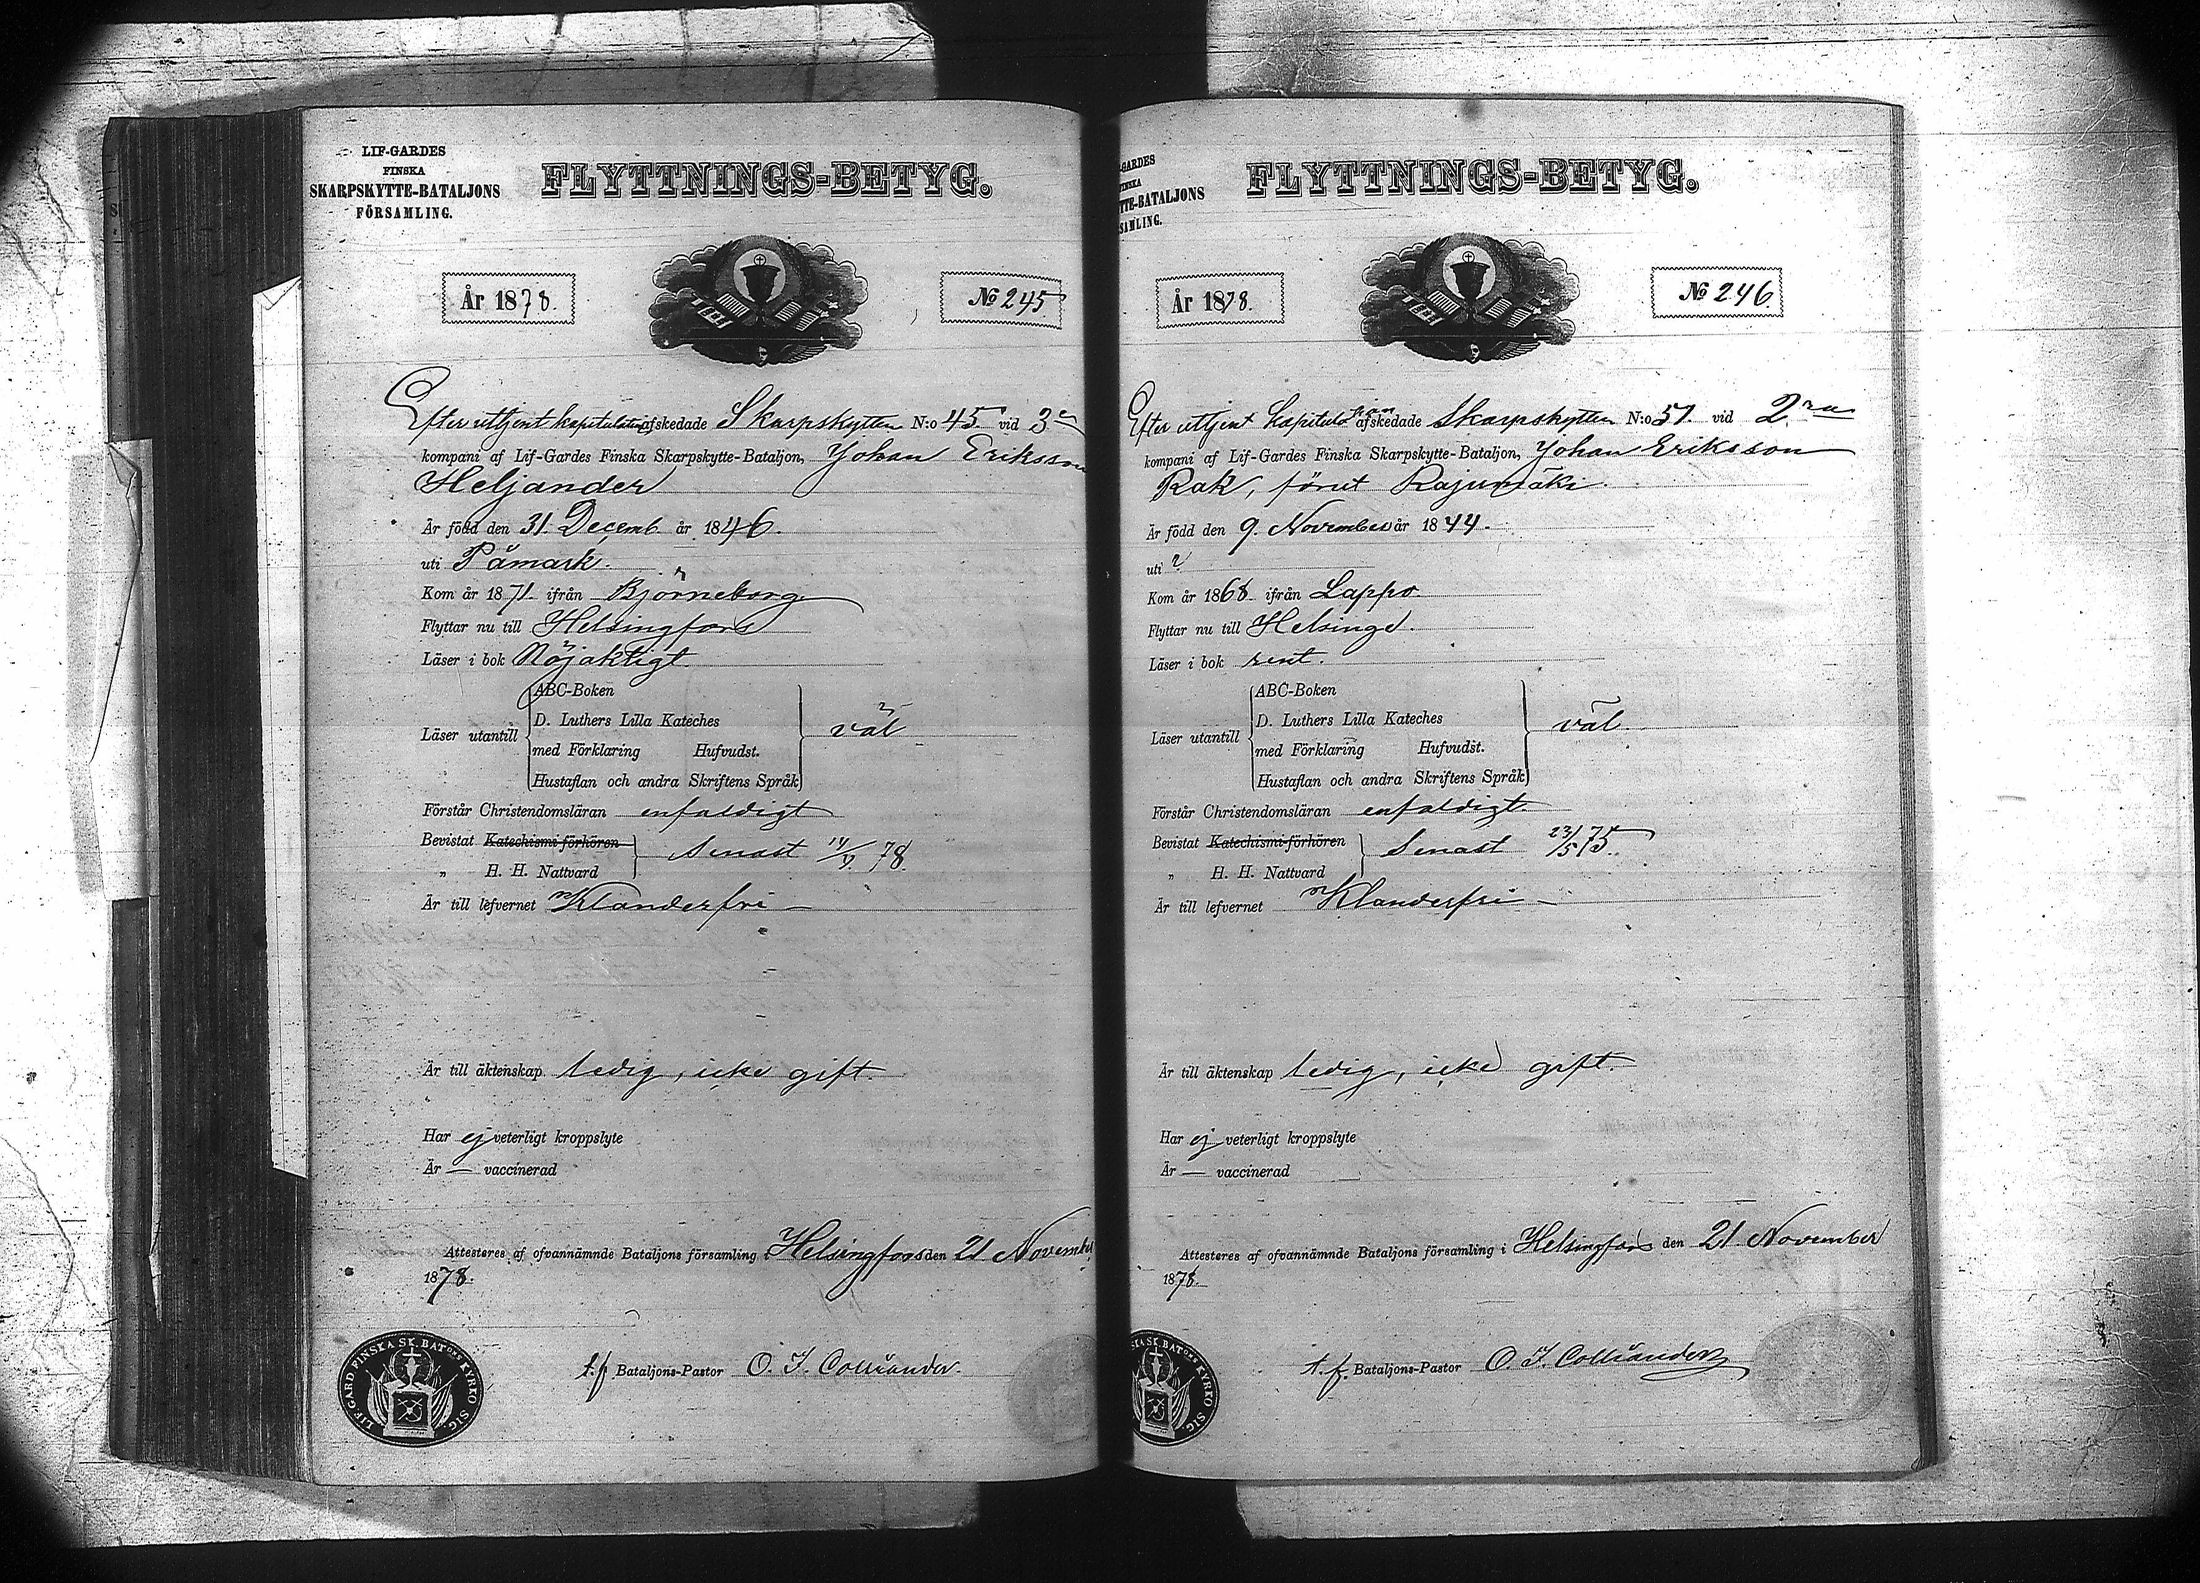 LIF-GARDES
FINSKA
SKARPSKYTTE-BATALJONS
FÖRSAMLING.
FLYTTNINGS-BETYG.
År 1878.
No 245
Efter uttjent kapitulation afskedade Skarpskytten N:o 45 vid 3e
kompani af Lif-Gardes Finska Skarpskytte-Bataljon, Johan Eriksson
Heljander
Är född den 31. Decemb. år 1846.
uti Påmark.
Kom år 1871. ifrån Björneborg.
Flyttar nu till Helsingfors
Läser i bok Nöjaktigt
Läser utantill
ABC-Boken
D. Luthers Lilla Kateches
med Förklaring Hufvudst.
Hustaflan och andra Skriftens Språk
väl
Förstår Christendomsläran enfaldigt
Bevistat Katechismi-förhören
„ H. H. Nattvard
Senast 78.
Är till lefvernet Klanderfri –
Är till äktenskap ledig, icke gift.
Har ej veterligt kroppslyte
Är — vaccinerad
Attesteres af ofvannämnde Bataljons församling i Helsingfors den 21 Novemb
1878.
t.f. Bataljons-Pastor O. I. Colliander.
LIF-GARD FINSKA SK. BATONS KYRKO SIG.
-GARDES
INSKA
TTE-BATALJONS
SAMLING.
FLYTTNINGS-BETYG.
År 1878.
No 246.
Efter uttjent kapitulation afskedade Skarpskytten N:o 51. vid 2ra
kompani af Lif-Gardes Finska Skarpskytte-Bataljon, Johan Eriksson
Rak, förut Rajumäki.
Är född den 9. November år 1844.
uti ?
Kom år 1868. ifrån Lappo.
Flyttar nu till Helsinge.
Läser i bok rent.
Läser utantill
ABC-Boken
D. Luthers Lilla Kateches
med Förklaring Hufvudst.
Hustaflan och andra Skriftens Språk
väl.
Förstår Christendomsläran enfaldigt
Bevistat Katechismi-förhören
„ H. H. Nattvard
Senast 23/5 75.
Är till lefvernet Klanderfri –
Är till äktenskap ledig, icke gift.
Har ej veterligt kroppslyte
Är — vaccinerad
Attesteres af ofvannämnde Bataljons församling i Helsingfors den 21. November
1878.
t.f. Bataljons-Pastor O. I. Colliander
SKA SK. BATONS KYRKO SIG.